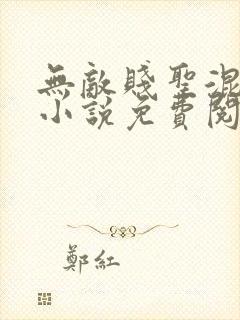 無敵賤聖混
小說免費閱
鄭紅